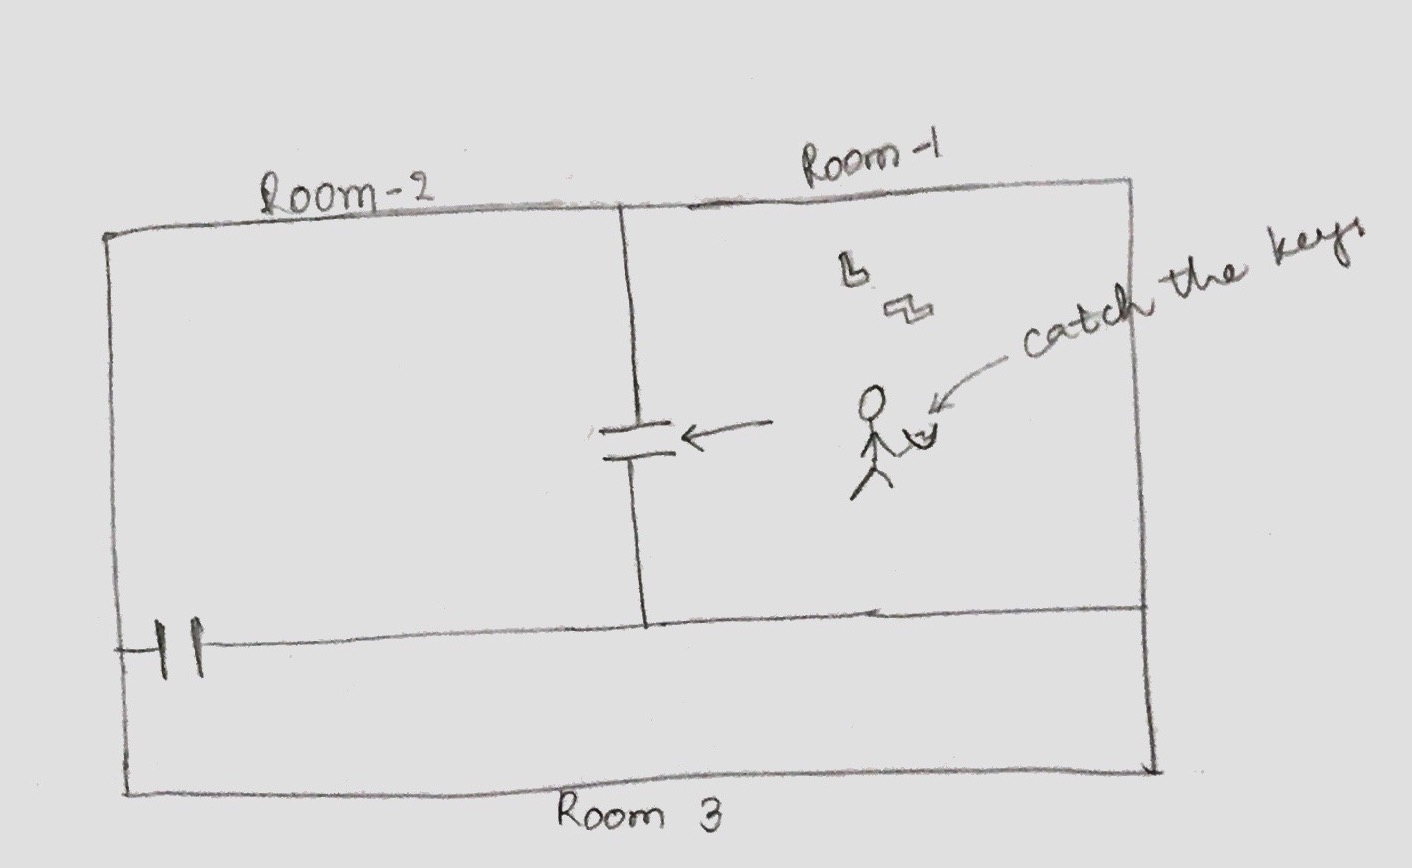 Room-2
Room-1
catch the keys
Room 3